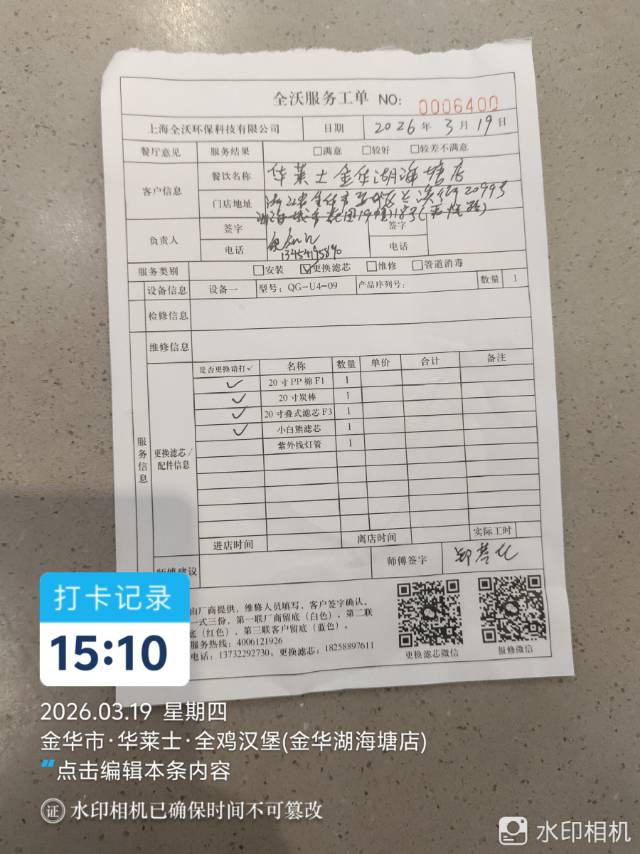 全沃服务工单 NO: 0006400
上海全沃环保科技有限公司 日期 2026年 3月 19日
餐厅意见 服务结果 □满意 □较好 □较差不满意
客户信息 餐饮名称 华莱士金华湖海塘店
门店地址 浙江省金华市婺城区 2099号
湖海 19幢118号
负责人 签字 签字
电话 电话
服务类别 □安装 ☑更换滤芯 □维修 □管道消毒
设备信息 设备一 型号: QG-U4-09 产品序列号: 数量 1
检修信息
维修信息
服务信息 更换滤芯/配件信息 是否更换请打✓ 名称 数量 单价 合计 备注
✓ 20寸PP棉F1 1
✓ 20寸炭棒 1
✓ 20寸叠式滤芯F3 1
✓ 小白熊滤芯 1
紫外线灯管 1
进店时间 离店时间 实际工时
师傅建议 师傅签字
由厂商提供, 维修人员填写, 客户签字确认。
一式三份, 第一联厂商留底(白色), 第二联
底(红色), 第三联客户留底(蓝色)。
服务热线: 4006121926
电话: 13732292730、更换滤芯: 18258897611
更换滤芯微信 报修微信
打卡记录
15:10
2026.03.19 星期四
金华市·华莱士·全鸡汉堡(金华湖海塘店)
点击编辑本条内容
证 水印相机已确保时间不可篡改
水印相机